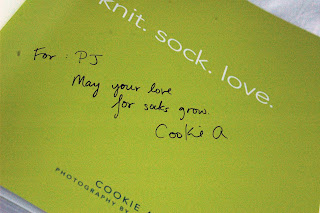 knit. sock. love.
For : PJ
May your love
for socks grow.
Cookie A
COOKIE
PHOTOGRAPHY BY